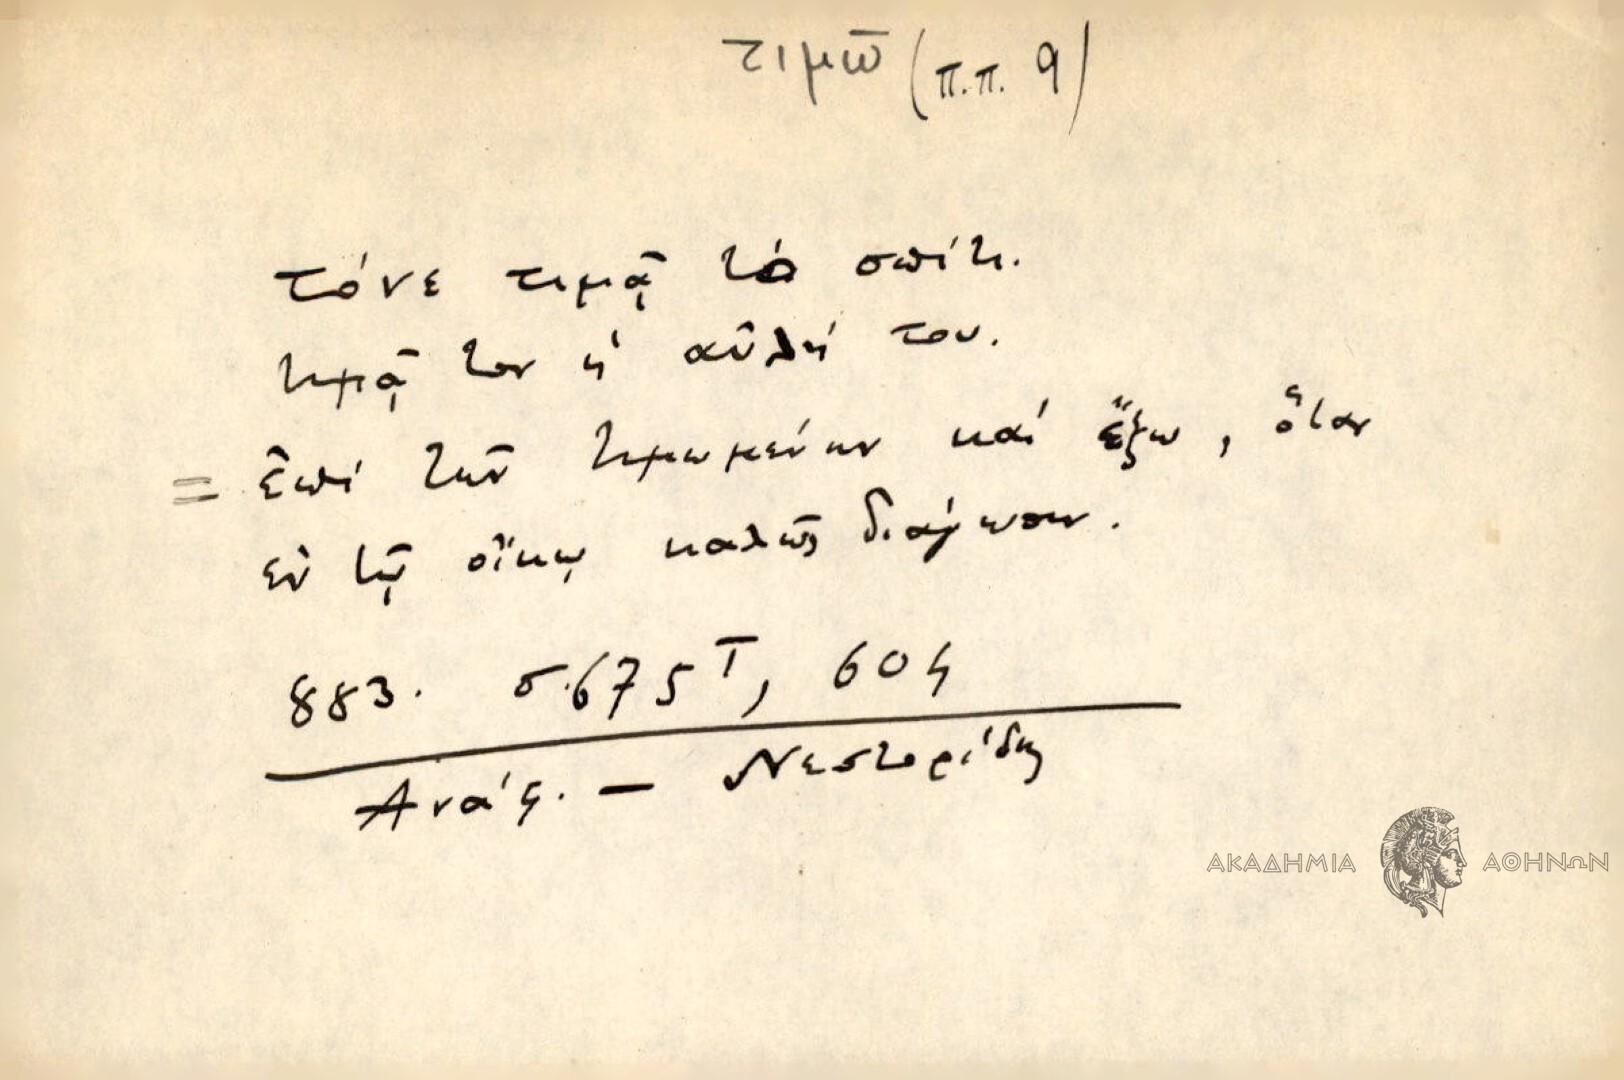 τιμῶ (π.π. 9)
τόνε τιμᾷ τὸ σπίτι.
τιμᾷ τον ἡ αὐλή του.
= ἐπὶ τῶν τιμωμένων καὶ ἔξω, ὅταν
ἐν τῷ οἴκῳ καλῶς διάγωσιν.
883. σ.675 Τ, 604
Ανάς. — Νεστορίδης
ΑΚΑΔΗΜΙΑ ΑΘΗΝΩΝ